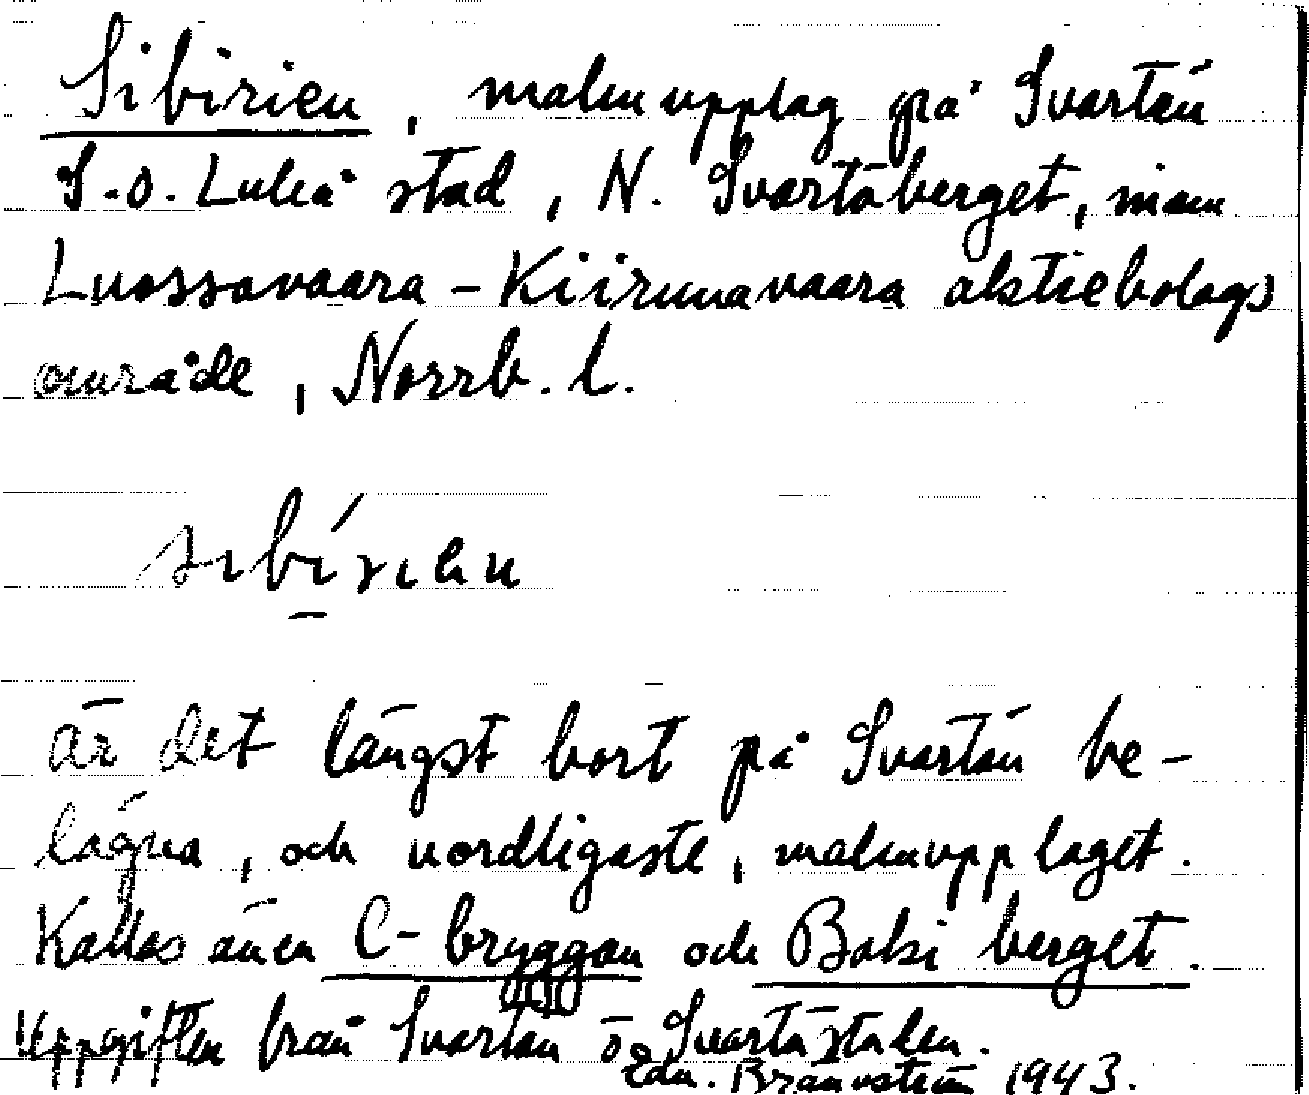 Sibirien, malmupplag på Svartön
S.O. Luleå stad, N. Svartöberget, inom
Luossavaara-Kiirunavaara aktiebolags
område, Norrb. l.
sibírien
är det längst bort på Svartön be-
lägna, och nordligaste, malmupplaget.
Kallas även C-bryggan och Baksi berget.
Uppgiften från Svartön o. Svartöstaden.
Edv. Brännström 1943.